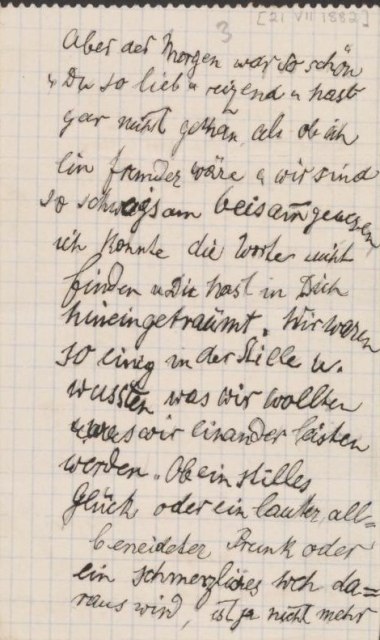 3 [21 VII 1882]
Aber der Morgen war so schön
u Du so lieb u reizend u hast
gar nicht gethan, als ob ich
ein fremder wäre u wir sind
so schweigsam beisam̄ gewesen,
ich konnte die Worte nicht
finden u Du hast in Dich
hineingeträumt. Wir waren
so einig in der Stille u.
wussten was wir wollten
u was wir einander leisten
werden. Ob ein stilles
Glück oder ein lauter, all=
beneideter Prunk oder
ein schmerzliches Weh da=
raus wird, ist ja nicht mehr